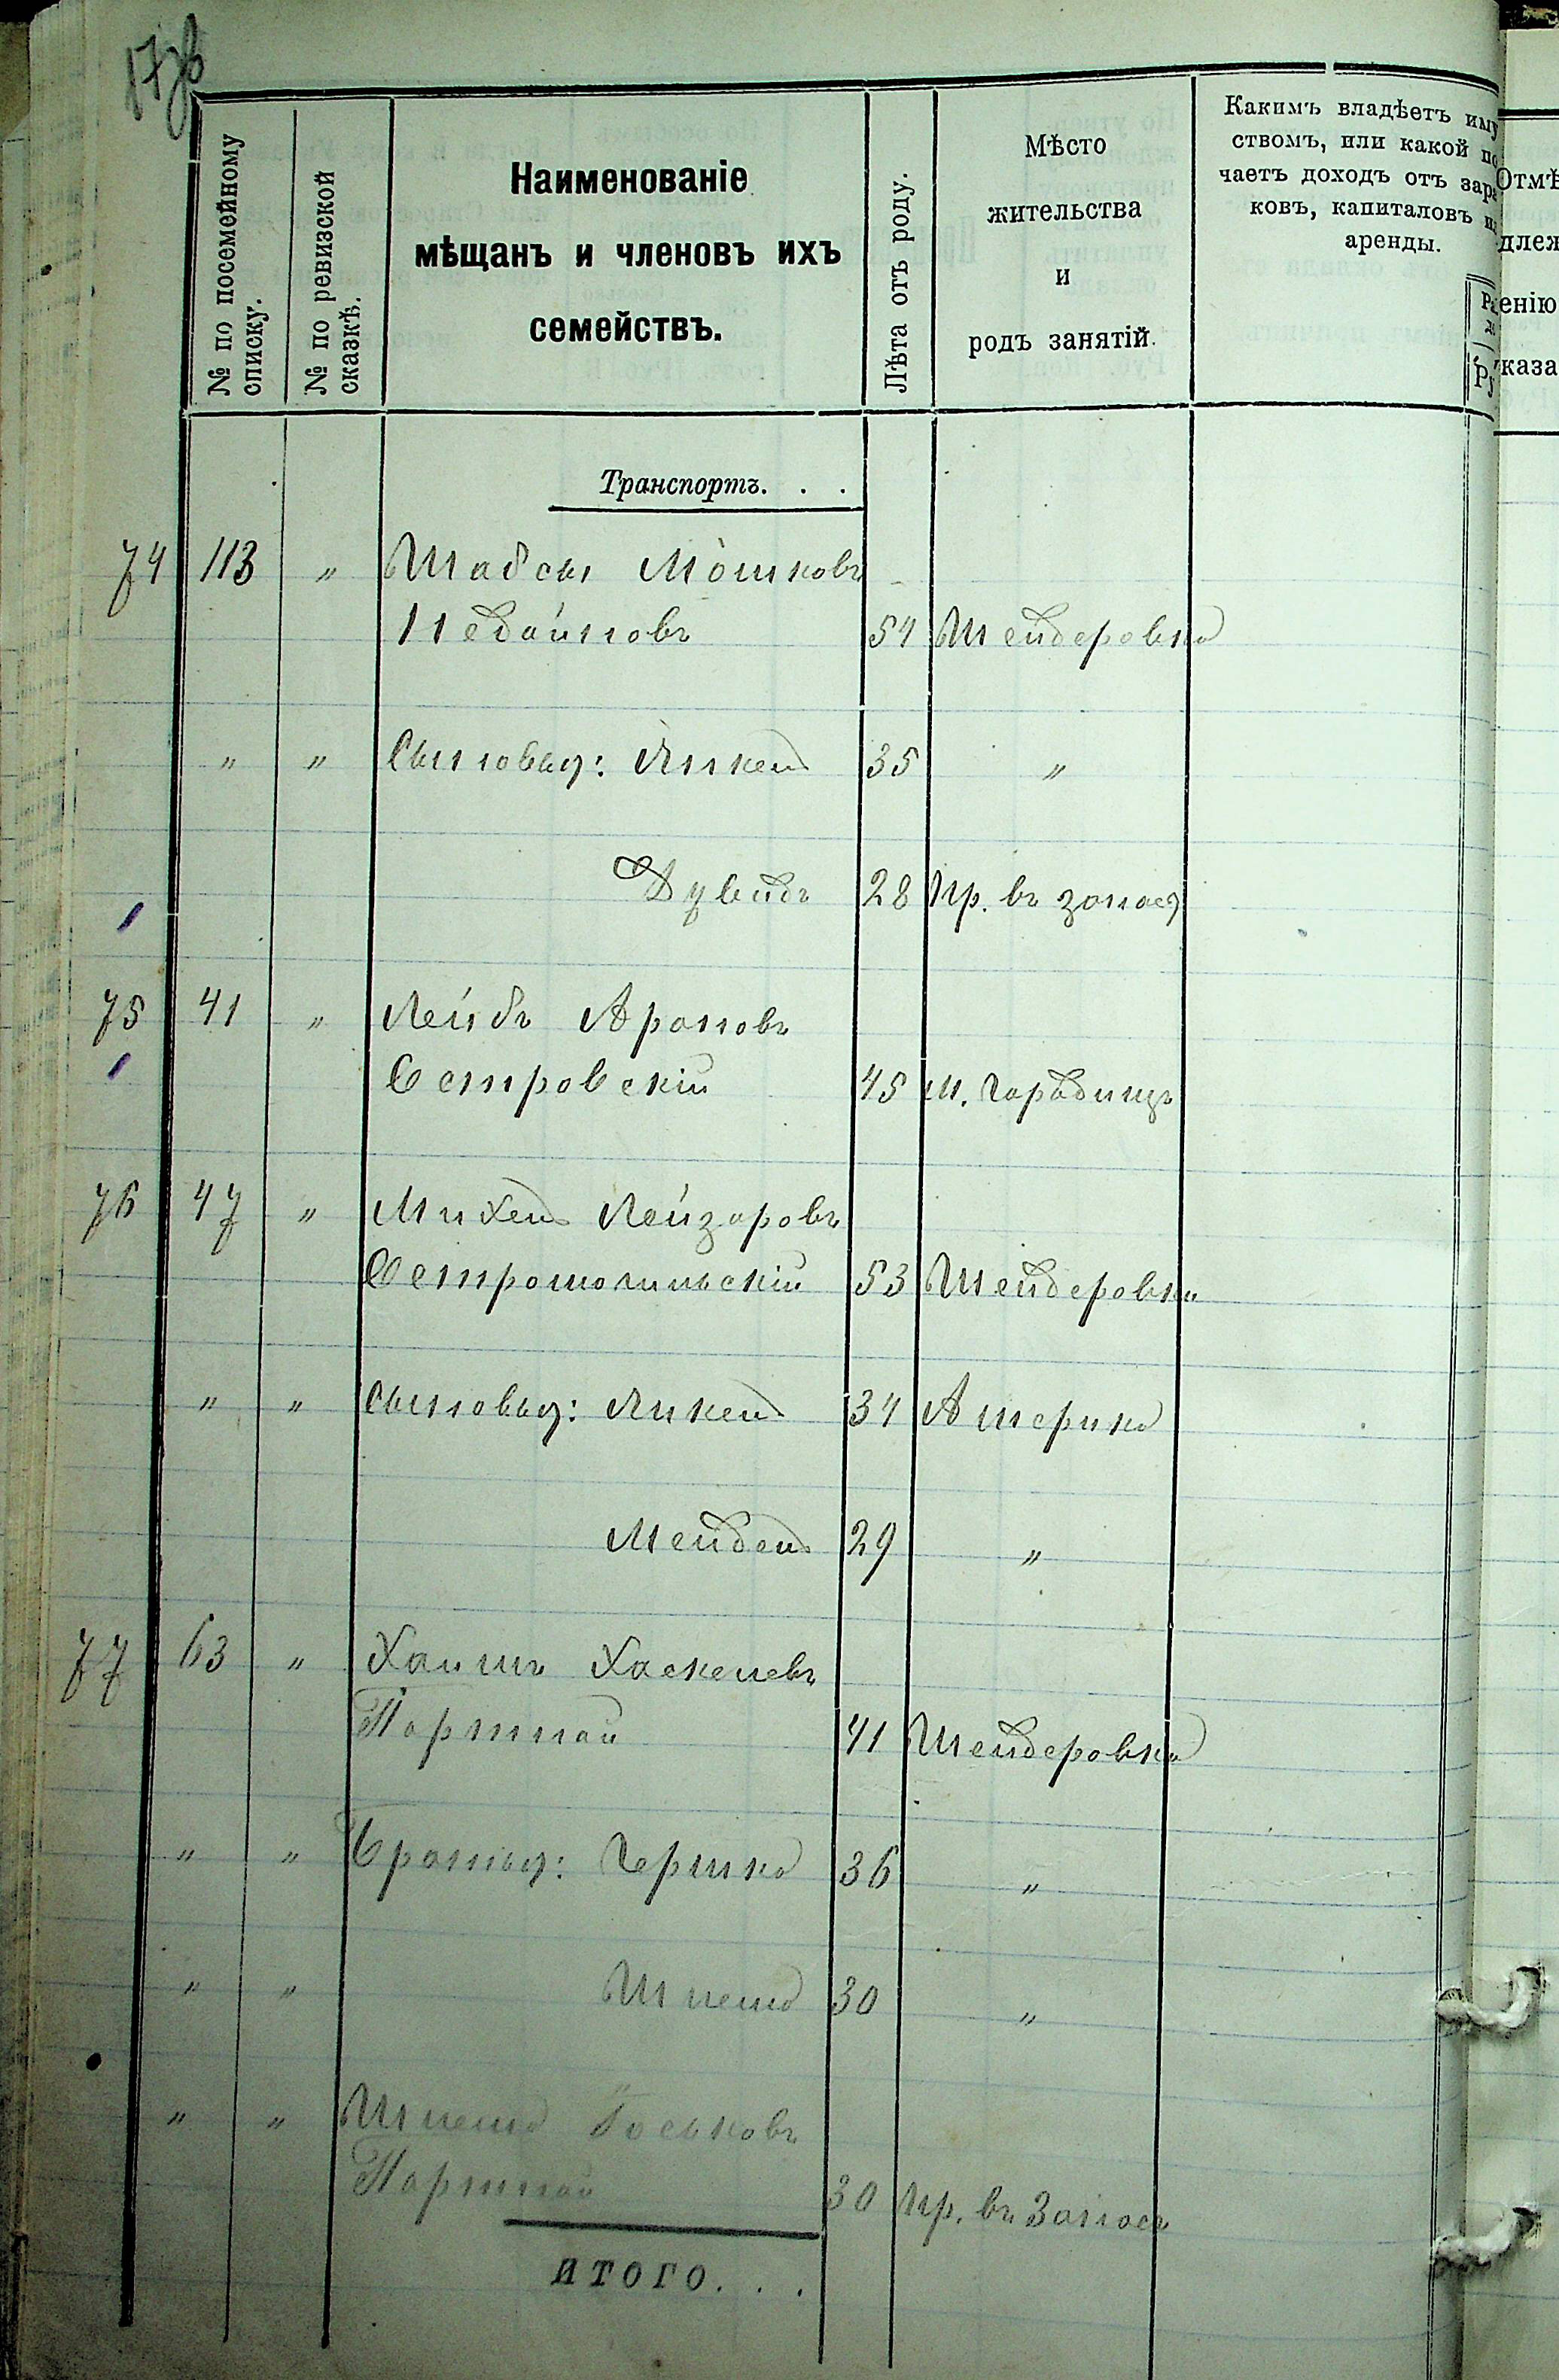 № по посемейному списку.
№ по ревизской сказкѣ.
Наименованіе
мѣщанъ и членовъ ихъ
семействъ.
Лѣта отъ роду.
Мѣсто
жительства
и
родъ занятій.
Какимъ владѣетъ иму
ствомъ, или какой по
чаетъ доходъ отъ зара
ковъ, капиталовъ и
аренды.
Отмѣ
длеж
енію
каза
Ру
Транспортъ. . .
74 113 " Шабсы Мошковъ
54 Шендеровка
" " Сыновья: Янкель 35 "
Дувидъ 28 Пр. въ запасъ
75 41 " Лейбъ Ароновъ
Островскій 45 м. Городище
76 47 " Михель Лейзоровъ
Остромогильскій 53 Шендеровка
" " Сыновья: Янкель 34 Америка
Мендель 29 "
77 63 " Хаимъ Хаскелевъ
Портной 41 Шендеровка
" " Братья: Гершко 36 "
" " Шлема 30 "
" " Шлема Іоськовъ
Портной 30 Пр. въ Запасъ
ИТОГО. . .